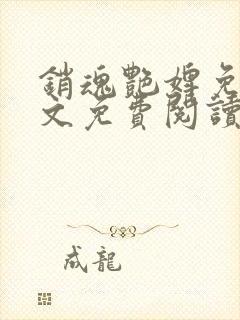 銷魂艷婢免
文免費閱讀
成龍